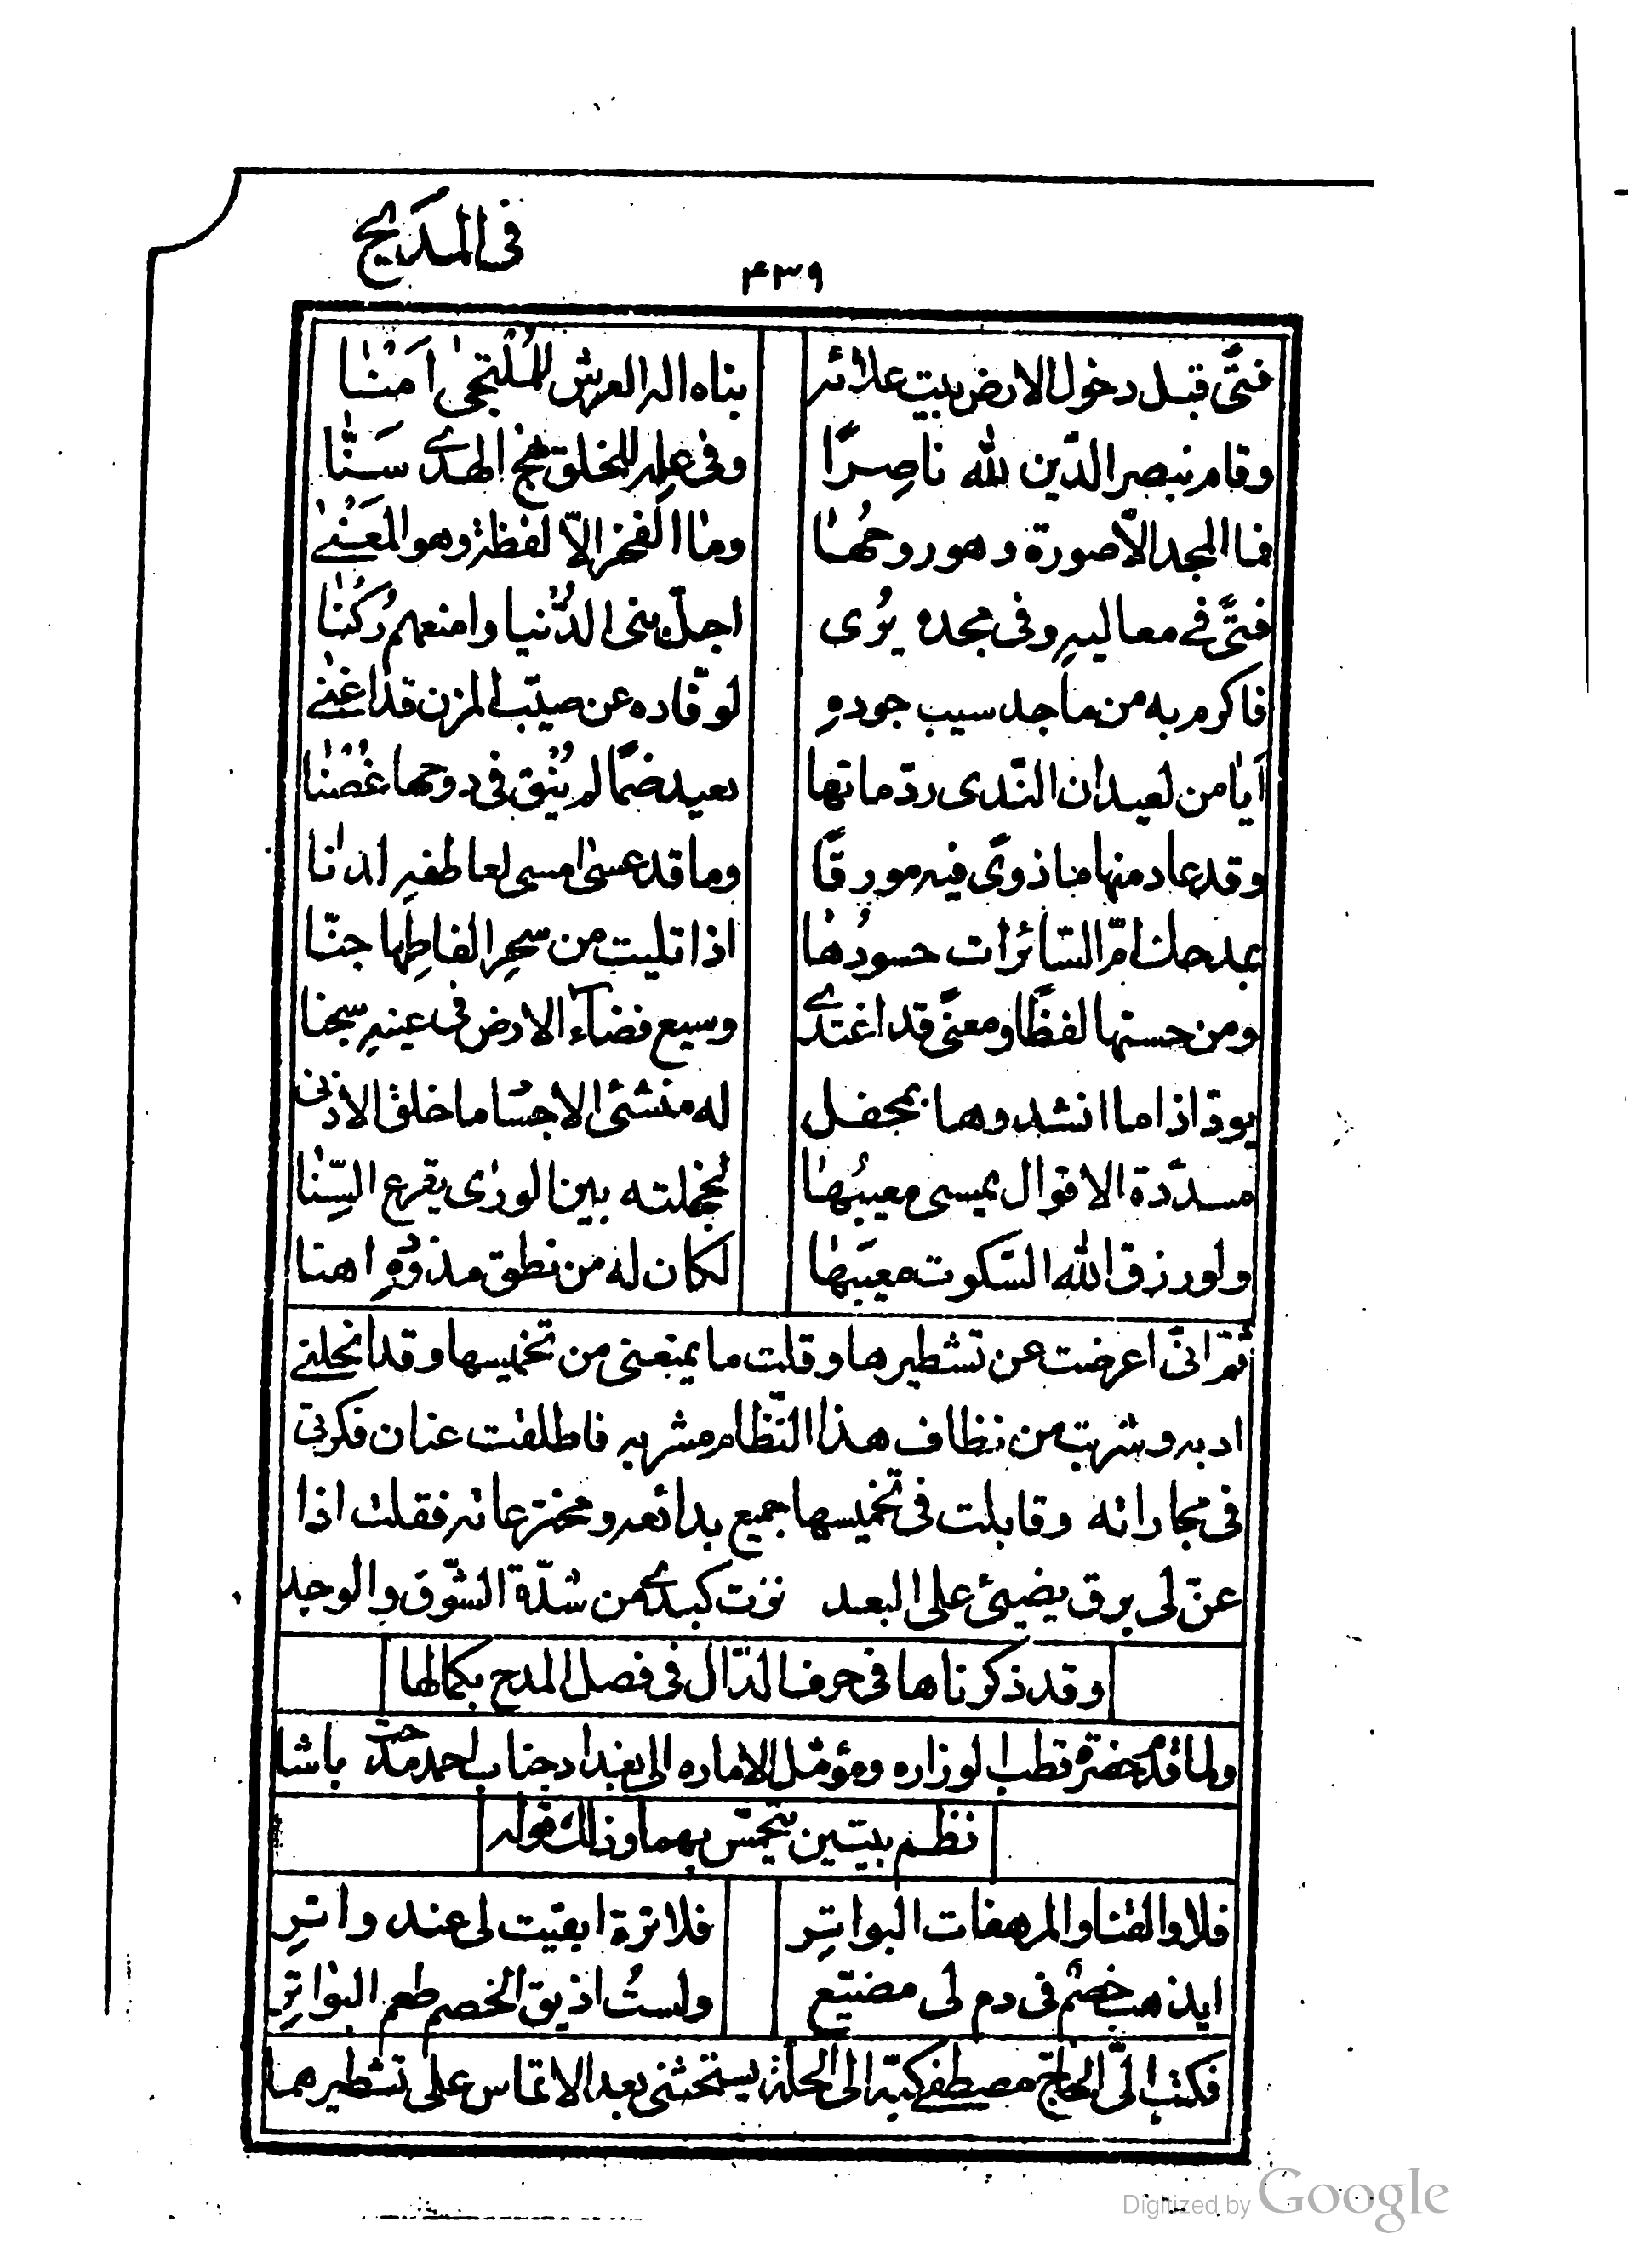 فى المدَيح
٤٣٩
فتىً قبل دخول الارض بيت علائه بناه اله العرش للمُلتجىٰ اَمْنٰا
وقام بنصر الدّين لله ناصِرًا وفى علمه للخلق نهج الهدى سَنّٰا
فما المجد الاّ صورة وهو روحُهٰا ومٰا الفخر الاّ لفظة وهو المَعْنىٰ
فتىً فى معاليهِ وفى مجده يُرى اجلّ بنى الدُّنيا وامنعهم رُكنٰا
فاكرم به من ماجد سيب جودهِ لوفّاده عن صيّب المزن قد اغنىٰ
اَيٰا من لعيدان النّدى ردّ ماءها بعيد ضمًا لم يُبْق فى دوحها غُصْنٰا
وقد عاد منها ما ذوىٰ فيه مورقًا وما قد عسىٰ امسى لعاطفهِ لدنٰا
بمدحك امّ السّائرات حسودُهٰا اذا تليت من سحرِ الفاظِها جنّا
ومن حسنها لفظًا ومعنىً قد اغتدى وسيع فضآء الارض فى عينهِ سجنا
يودّ اذا ما انشدوها بمحفل له منشئ الاجسٰام ما خلق الاذنى
مسدّدة الاقوال يمسى معيبُهٰا لخجلته بين الورٰى يقرع السِّنٰا
ولو رزق الله السّكوت معيبَهٰا لكان له من نطق مذوّهِ اهنا
ثم انّى اعرضت عن تشطيرها وقلت ما يمنعنى من تخميسها وقد انحلنى
ادبه وشربت من نظاف هذا النّظام مشربه فاطلقت عنان فكرتى
فى مجاراته وقابلت فى تخميسها جميع بدائعه ومخترعاته فقلت اذا
عنّ لى برق يضيئ على البعد نزت كبدى من شدّة الشّوق والوجد
وقد ذكرناها فى حرف الدّال فى فصل المدح بكمالها
ولما قدم حضرة قطب الوزاره ومؤمّل الاماره الى بغداد جناب احمد مدحت باشا
نظم بيتين يتحمّس بهما وذلك قوله
فلا والقنا والمرهفات البواتِرِ فلا ترة ابقيت لى عند واترِ
ايذهب خصم فى دم لى مضيّع ولستُ اذيق الخصم طعم البوٰاتِرِ
فكتب الىّ الحاج مصطفى كبّه الى الحلّة يستحثنى بعد الالتماس على تشطيرهما
Digitized by Google